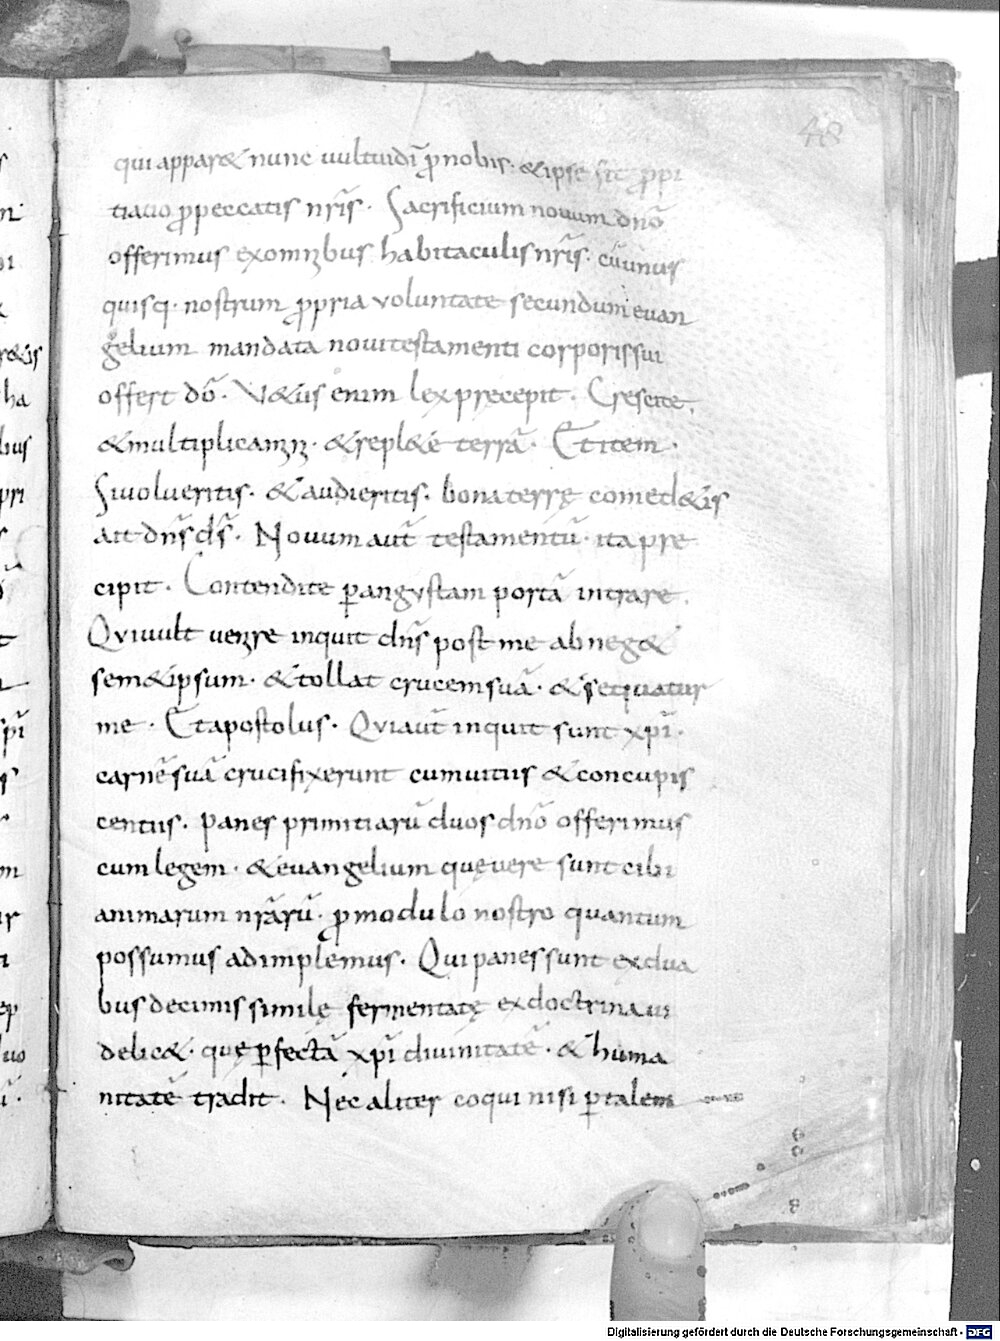 48
qui appar& nunc uultui dī ꝓ nobis · & ipse sit ꝓpi
tiatio ꝓ peccatis nr̄is · Sacrificium nouum dn̄o
offerimus ex omnibus habitaculis nr̄is · cū unus
quisq· nostrum ꝓpria voluntate secundum evan
gelium mandata noui testamenti corporis sui
offert dō · V&us enim lex precepit · Crescite
& multiplicamini · & repl&e terrā · Et item ·
Si volueritis · & audieritis · bona terrę comed&is
ait dn̄s ds̄ · Nouum aut̄ testamentū · ita pre
cipit · Contendite ꝑ angustam portā intrare ·
Qui uult uenire inquit dn̄s post me abneg&
sem&ipsum · & tollat crucem suā · & sequatur
me · Et apostolus · Qui aut̄ inquit sunt xp̄i ·
carnē suā crucifixerunt cum uitiis & concupis
centiis · panes primitiarū duos dn̄o offerimus
cum legem · & evangelium quę vere sunt cibi
animarum nr̄arū · ꝓ modulo nostro quantum
possumus adimplemus · Qui panes sunt ex dua
bus decimis similę fermentatę ex doctrina ui
delic& · quę ꝑfectā xp̄i divinitatē · & huma
nitatē tradit · Nec aliter coqui nisi ꝑ talem
Digitalisierung gefördert durch die Deutsche Forschungsgemeinschaft - DFG